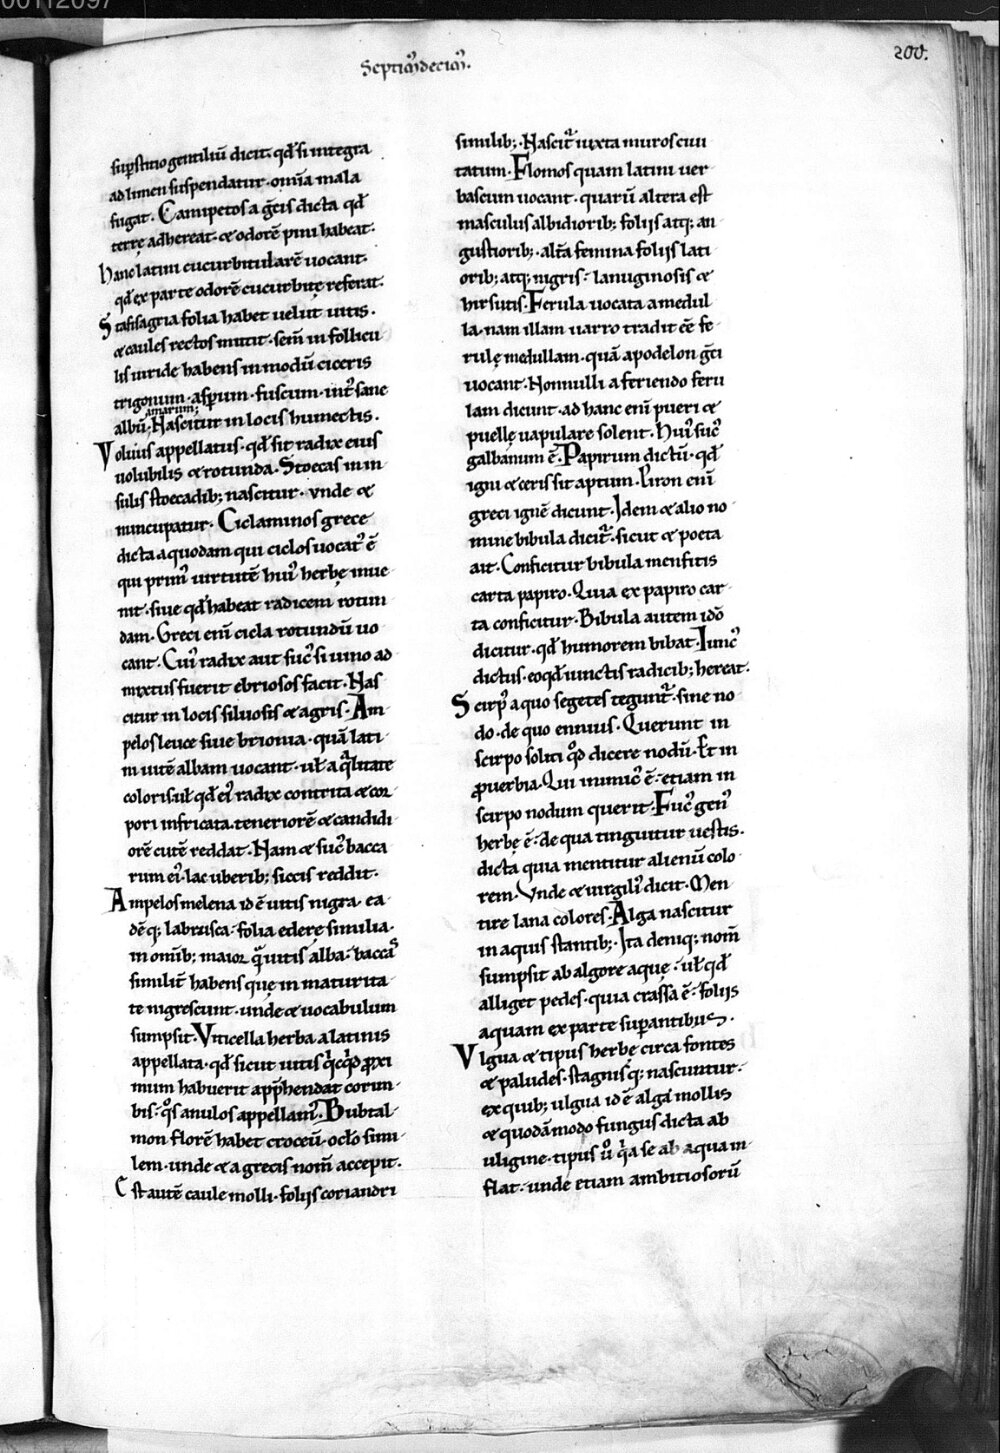 00112097
Septim᷒decim᷒.
200.
supstitio gentiliū dicit. qđ si integra
ad limen suspendatur. omīa mala
fugat. Camipetos a ḡcis dicta qđ
terrę adhereat. & odorē pini habeat.
hanc latini cucurbitularē uocant.
qđ ex parte odorē cucurbitę referat.
Stafisagria folia habet uelut uitis.
& caules rectos mittit. sem̄ in follicu
lis uiride habens in modū ciceris
trigonum. asp̄um. fuscum. int̄ sane
amarum;
albū. Nascitur in locis humectis.
Voluus appellatus. qđ sit radix eius
uolubilis & rotunda. Stoecas in in
sulis stoecadib; nascitur. vnde &
nuncupatur. Ciclaminos grece
dicta a quodam qui ciclos uocat᷒ ē
qui prim᷒ uirtutē hui᷒ herbę inue
nit. siue qđ habeat radicem rotun
dam. Greci eni̅ cicla rotundū uo
cant. Cui᷒ radix aut suc᷒ si uino ad
mixtus fuerit ebriosos facit. Nas
citur in locis siluosis & agris. Am
pelos leuce siue brionia. quā lati
ni uitē albam uocant. uł a q̄litate
coloris uł qđ ei᷒ radix contrita & cor
pori infricata. teneriorē & candidi
orē cutē reddat. Nam & suc᷒ bacca
rum ei᷒. lac uberib; siccis reddit.
Ampelos melena id ē uitis nigra. ea
dēq; labrusca. folia ederę similia.
in omib; maior q̄ uitis alba. baccas
similit̄ habens que in maturita
te nigrescunt. unde & uocabulum
sumpsit. Viticella herba a latinis
appellata. qđ sicut uitis qͥcqͥd ꝓxi
mum habuerit app̄hendat corim
bis. qͦs anulos appellam᷒. Bubtal
mon florē habet croceū. oclo simi
lem. unde & a grecis nom̄ accepit.
Est autē caule molli. foliis coriandri
similib;. Nascit᷒ iuxta muros ciui
tatum. Flomos quam latini uer
bascum uocant. quarū altera est
masculus albidiorib; foliis atq; an
gustiorib;. alta femina foliis lati
orib; atq; nigris. lanuginosis &
hirsutis. Ferula uocata a medul
la. nam illam uarro tradit eē fe
rulę medullam. quā apodelon ḡci
uocant. Nonnulli a feriendo feru
lam dicunt. ad hanc eni̅ pueri &
puellę uapulare solent. Hui᷒ suc᷒
galbanum ē. Papirum dictū. qđ
igni & ceris sit aptum. Piron eni̅
greci ignē dicunt. Idem & alio no
mine bibula dicit᷒. sicut & poeta
ait. Conficitur bibula menfitis
carta papiro. Quia ex papiro car
ta conficitur. Bibula autem idō
dicitur. qđ humorem bibat. Iunc᷒
dictus. eo qđ iunctis radicib; hereat.
Scirp᷒ a quo segetes tegunt᷒. sine no
do. de quo ennius. Querunt in
scirpo soliti qͦd dicere nodū. Et in
ꝓuerbia. Qui inimic᷒ ē. etiam in
scirpo nodum querit. Fuc᷒ gen᷒
herbę ē. de qua tinguitur uestis.
dicta quia mentitur alienū colo
rem. Vnde & uirgili᷒ dicit. Men
tire lana colores. Alga nascitur
in aquis stantib;. Ita deniq; nom̄
sumpsit ab algore aquę. uł qđ
alliget pedes. quia crassa ē. foliis
aquam ex parte superantibus.
Vlgua & tipus herbę circa fontes
& paludes. stagnisq; nascuntur.
ex quib; ulgua id ē alga mollis
& quodāmodo fungus dicta ab
uligine. tipus uͦ qͥa se ab aqua in
flat. unde etiam ambitiosorū